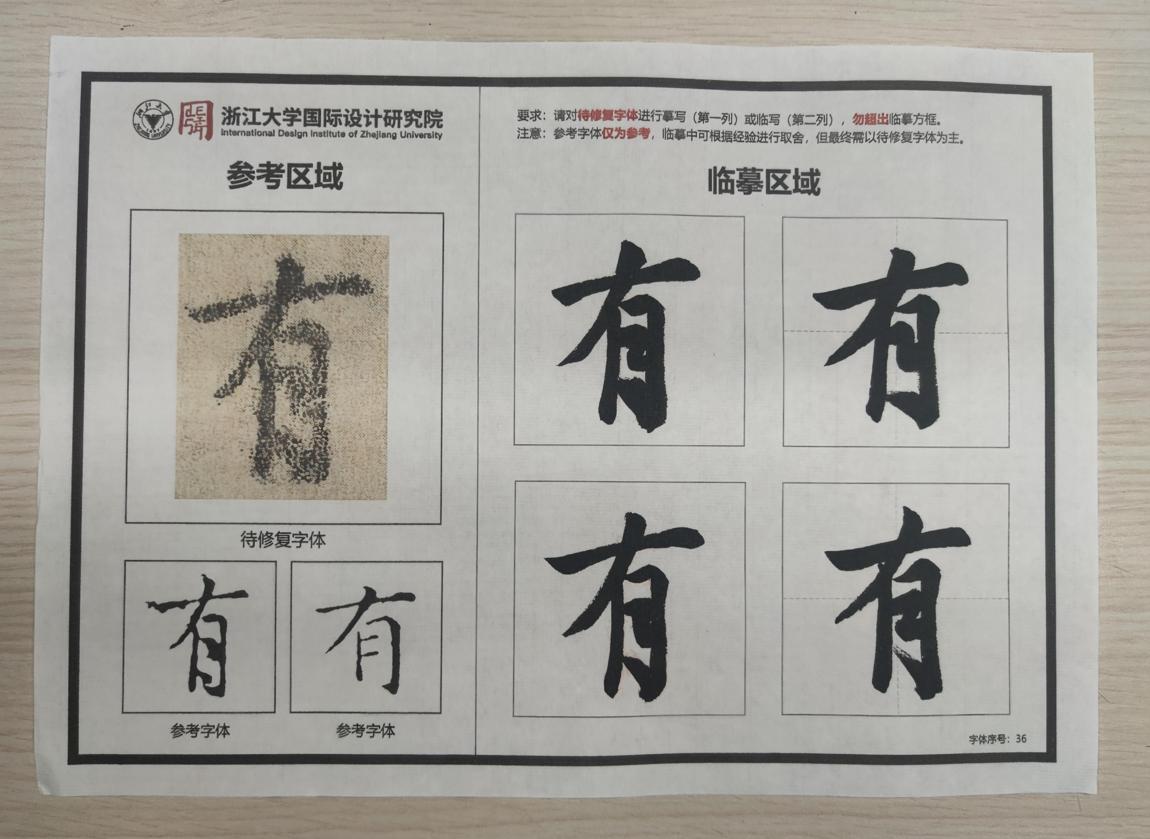 浙江大学国际设计研究院
International Design Institute of Zhejiang University
参考区域
有
待修复字体
有
有
参考字体
参考字体
要求：请对待修复字体进行摹写（第一列）或临写（第二列），勿超出临摹方框。
注意：参考字体仅为参考，临摹中可根据经验进行取舍，但最终需以待修复字体为主。
临摹区域
有
有
有
有
字体序号：36